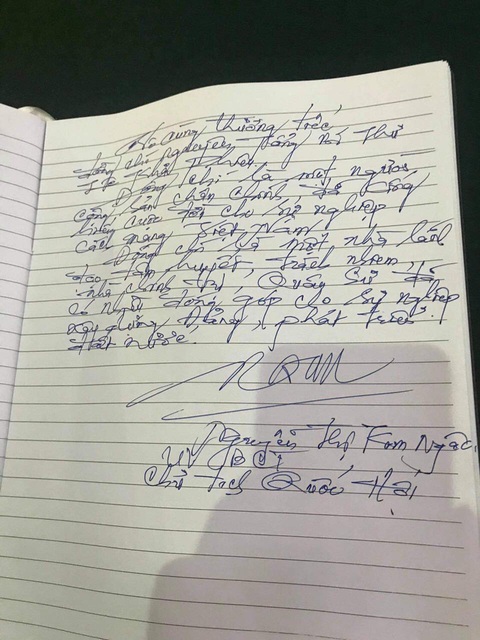 Vô cùng thương tiếc
đồng chí nguyên Tổng Bí Thư
Lê Khả Phiêu.
Đồng chí là một người
cộng sản chân chính, đã cống
hiến cuộc đời cho sự nghiệp
cách mạng Việt Nam
Đồng chí là một nhà lãnh
đạo tâm huyết, trách nhiệm,
nhà chính trị, Quân sự đã
có nhiều đóng góp cho sự nghiệp
xây dựng Đảng, phát triển
đất nước.
Nguyễn Thị Kim Ngân
UV BCT
Chủ tịch Quốc Hội